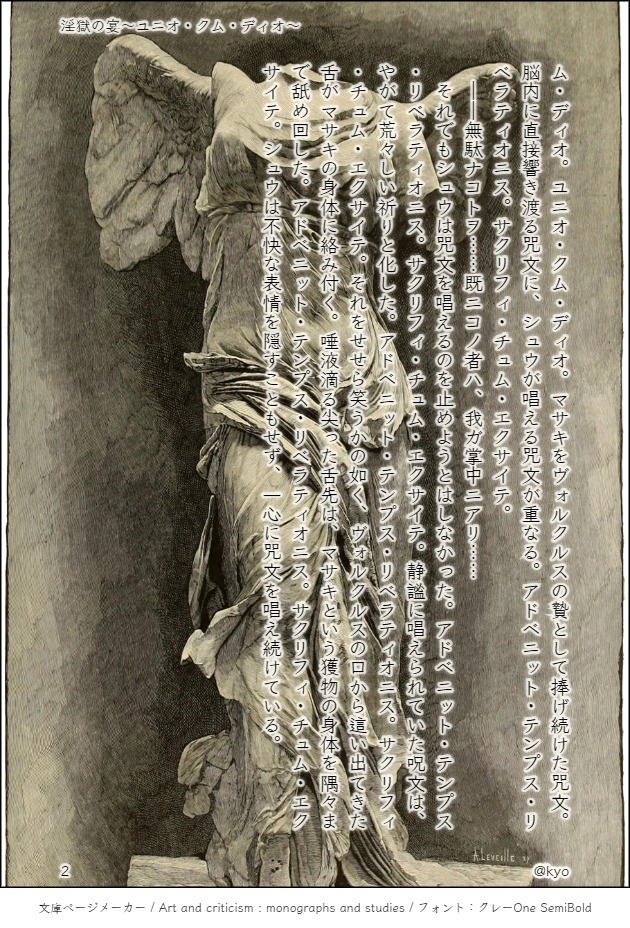 淫獄の宴～ユニオ・クム・ディオ～
ム・ディオ。ユニオ・クム・ディオ。マサキをヴォルクルスの贄として捧げ続けた呪文。
脳内に直接響き渡る呪文に、シュウが唱える呪文が重なる。アドベニット・テンプス・リ
ベラティオニス。サクリフィ・チュム・エクサイテ。
――無駄ナコトヲ……既ニコノ者ハ、我ガ掌中ニアリ……
それでもシュウは呪文を唱えるのを止めようとはしなかった。アドベニット・テンプス
・リベラティオニス。サクリフィ・チュム・エクサイテ。静謐に唱えられていた呪文は、
やがて荒々しい祈りと化した。アドベニット・テンプス・リベラティオニス。サクリフィ
・チュム・エクサイテ。それをせせら笑うかの如く、ヴォルクルスの口から這い出てきた
舌がマサキの身体に絡み付く。唾液滴る尖った舌先は、マサキという獲物の身体を隅々ま
で舐め回した。アドベニット・テンプス・リベラティオニス。サクリフィ・チュム・エク
サイテ。シュウは不快な表情を隠すこともせず、一心に呪文を唱え続けている。
A. LEVEILLÉ
2
@kyo
文庫ページメーカー / Art and criticism : monographs and studies / フォント：クレーOne SemiBold